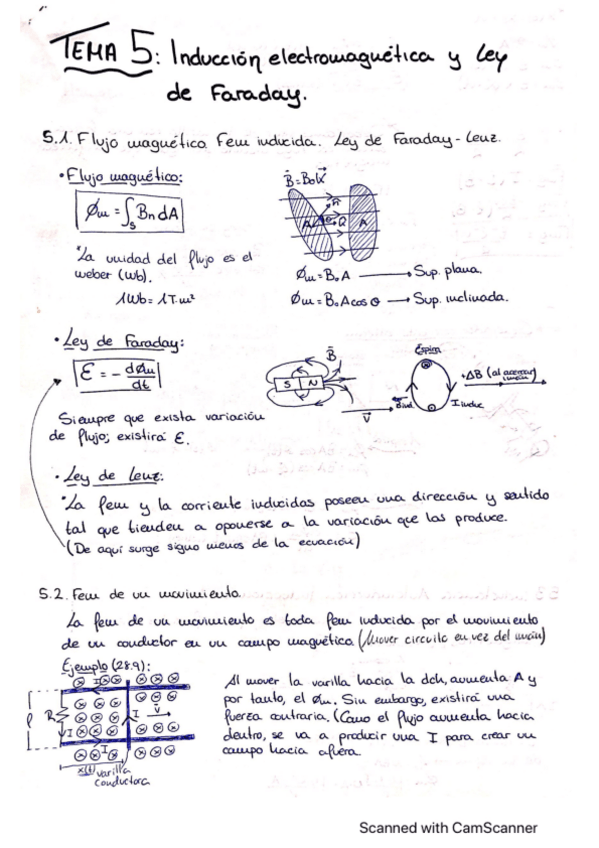 TEMA 5: Inducción electromagnética y Ley
de Faraday.
5.1. Flujo magnético. Fem inducida. Ley de Faraday-Lenz.
• Flujo magnético:
B⃗ = B₀ i⃗
Øm = ∫s Bn dA
n⃗
A
θ
A
*La unidad del flujo es el
weber (Wb).
1Wb = 1T·m²
Øm = B₀A → Sup. plana.
Øm = B₀Acosθ → Sup. inclinada.
• Ley de Faraday:
Ɛ = - dØm/dt
S N
B⃗
V⃗
Espira
Bind
I induc
ΔB (al acercar imán)
Siempre que exista variación
de flujo, existirá Ɛ.
• Ley de Lenz:
*La fem y la corriente inducidas poseen una dirección y sentido
tal que tienden a oponerse a la variación que las produce.
(De aquí surge signo menos de la ecuación)
5.2. Fem de un movimiento
La fem de un movimiento es toda fem inducida por el movimiento
de un conductor en un campo magnético (Mover circuito en vez del imán)
Ejemplo (28.9):
I
l
R
I
I
V⃗
I
x(t) varilla
conductora
Al mover la varilla hacia la dch, aumenta A y
por tanto, el Øm. Sin embargo, existirá una
fuerza contraria. (Como el flujo aumenta hacia
dentro, se va a producir una I para crear un
campo hacia afuera.
Scanned with CamScanner